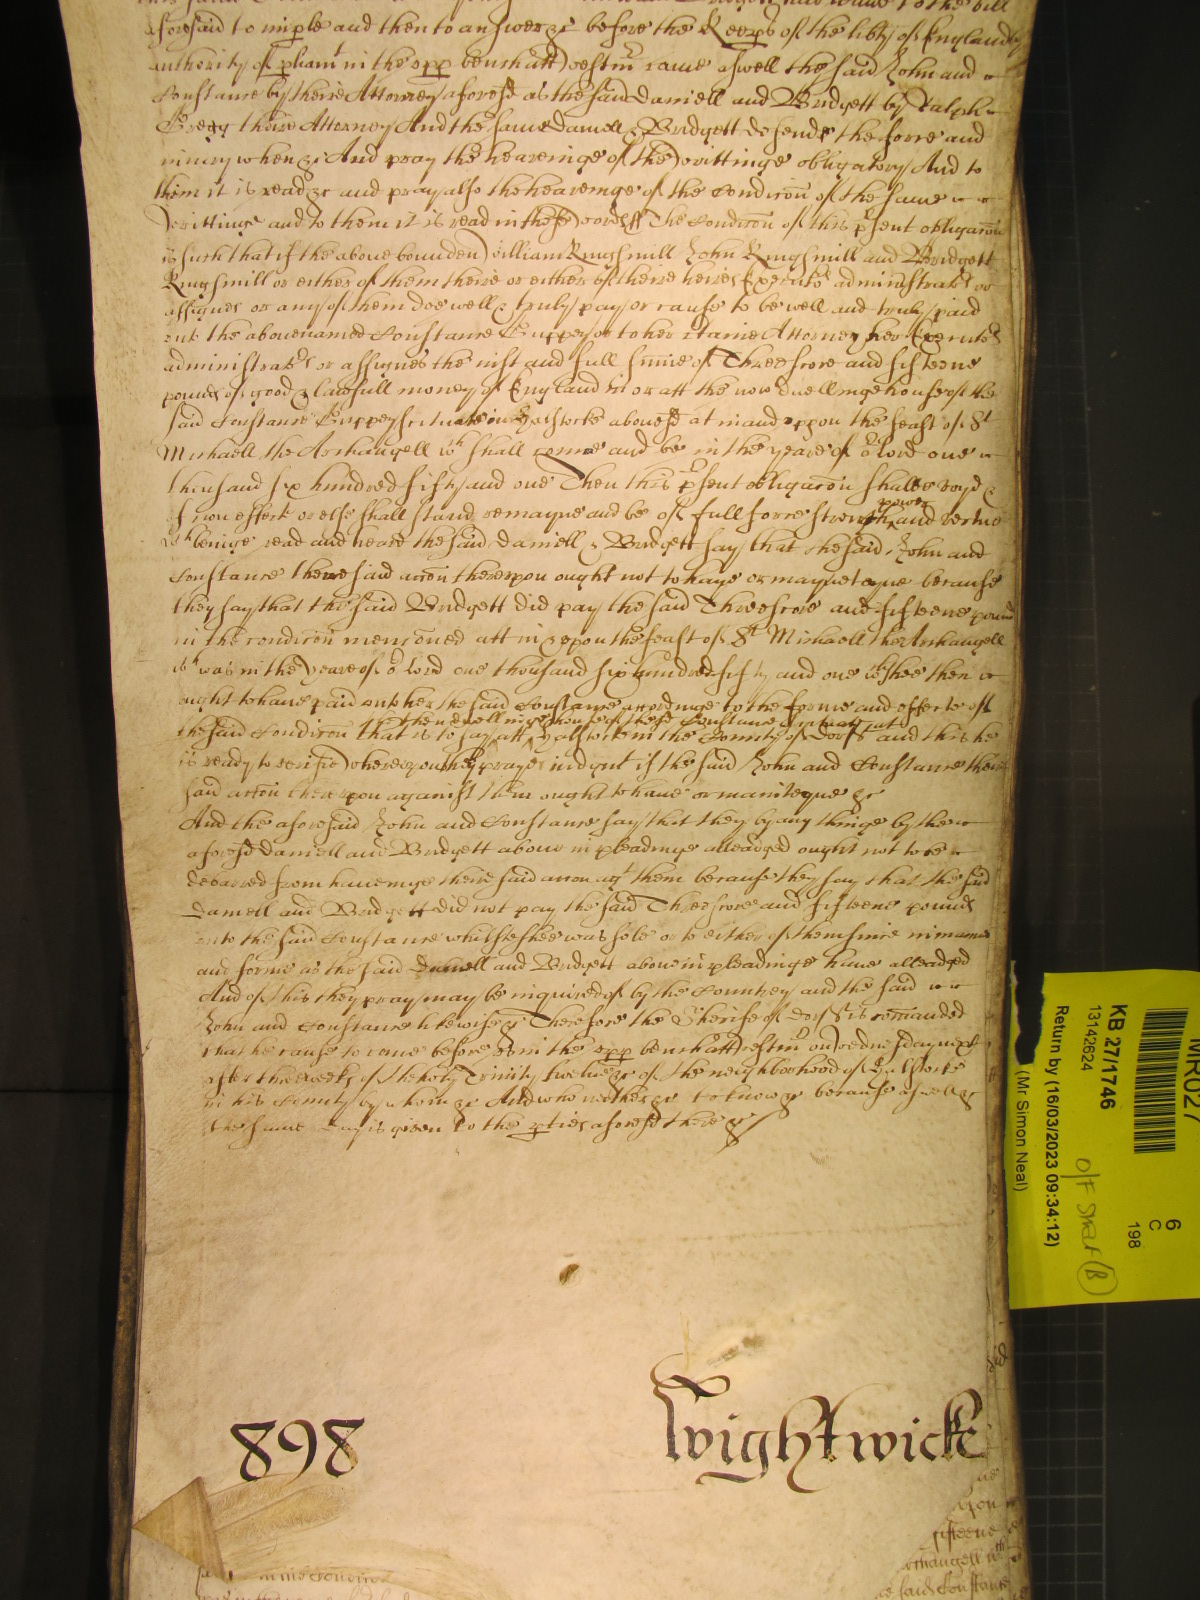 aforesaid to imple and then to answere &c before the Keeps of the libty of England by
authority of pliamt in the upp bench att Westm came aswell the said John and
Constance by theire Attorney aforesd as the said Daniell and Bridgett by Ralph
Gregg theire Attorney And the same Daniell & Bridgett defende the force and
iniury when &c And pray the heareinge of the writtinge obligatory And to
them it is read &c and pray also the heareinge of the Condicon of the same
writtinge and to them it is read in these words ss The Condicon of this psent obligacon
is such that if the above bounden William Kingsmill John Kingsmill and Bridgett
Kingsmill or either of them theire or either of theire heires Executors administrators or
assignes or any of them doe well & truly pay or cause to be well and truly paid
unto the abovenamed Constance Guppey or to her ctaine Attorney her Executors
administrators or assignes the iust and full summe of Threescore and fifteene
pounds of good & lawfull money of England in or att the now dwellinge house of the
said Constance Guppey scituate in Halstocke abovesd at in and uppon the feast of St
Michaell the Archangell wch shall come and be in the yeare of or lord one
thousand six hundred fifty and one Then this psent obligacon shalbe voyd &
of non effect or else shall stand remayne and be of full force strength power and vertue
wch beinge read and heard the said Daniell & Bridgett say that the said John and
Constance theire said accon thereupon ought not to have or mayneteyne because
they say that the said Bridgett did pay the said Threescore and fifteene pounds
in the condicon menconed att in & upon the feast of St Michaell the Archangell
wch was in the yeare of or lord one thousand six hundred fifty and one wch shee then
ought to have paid unto her the said Constance accordinge to the forme and effecte of
the then dwellinge house of the sd Constance scituat att
the said Condicon that is to say att Halstocke in the County of Dorst and this he
is ready to verifie Whereupon they praye iudgmt if the said John and Constance theire
said accon thereupon against them ought to have or mainteyne &c
And the aforesaid John and Constance say that they by any thinge by the
aforesd Daniell and Bridgett above in pleadinge alleadged ought not to be
debarred from haveinge theire said accon agt them because they say that the said
Daniell and Bridgett did not pay the said Threescore and fifteene pounds
unto the said Constance whilst shee was sole or to either of them since in manner
and forme as the said Daniell and Bridgett above in pleadinge have alleadged
And of this they pray may be inquired of by the Countrey and the said
John and Constance likewise &c Therefore the Sherife of Dorst is comanded
that he cause to come before us in the upp bench att Westm on Wednesday next
after three weeks of the holy Trinity twelve &c of the neighborhood of Halstocke
in his County by whom &c And who neither &c to know &c because aswell &c
the same day is given to the pties aforesd there &c
898 Wightwicke
upon
fifteene
Archangell wch
said Constance
MR027
KB 27/1746
13142624
Return by (16/03/2023 09:34:12)
(Mr Simon Neal)
6
C
198
O/F Shelf (B)